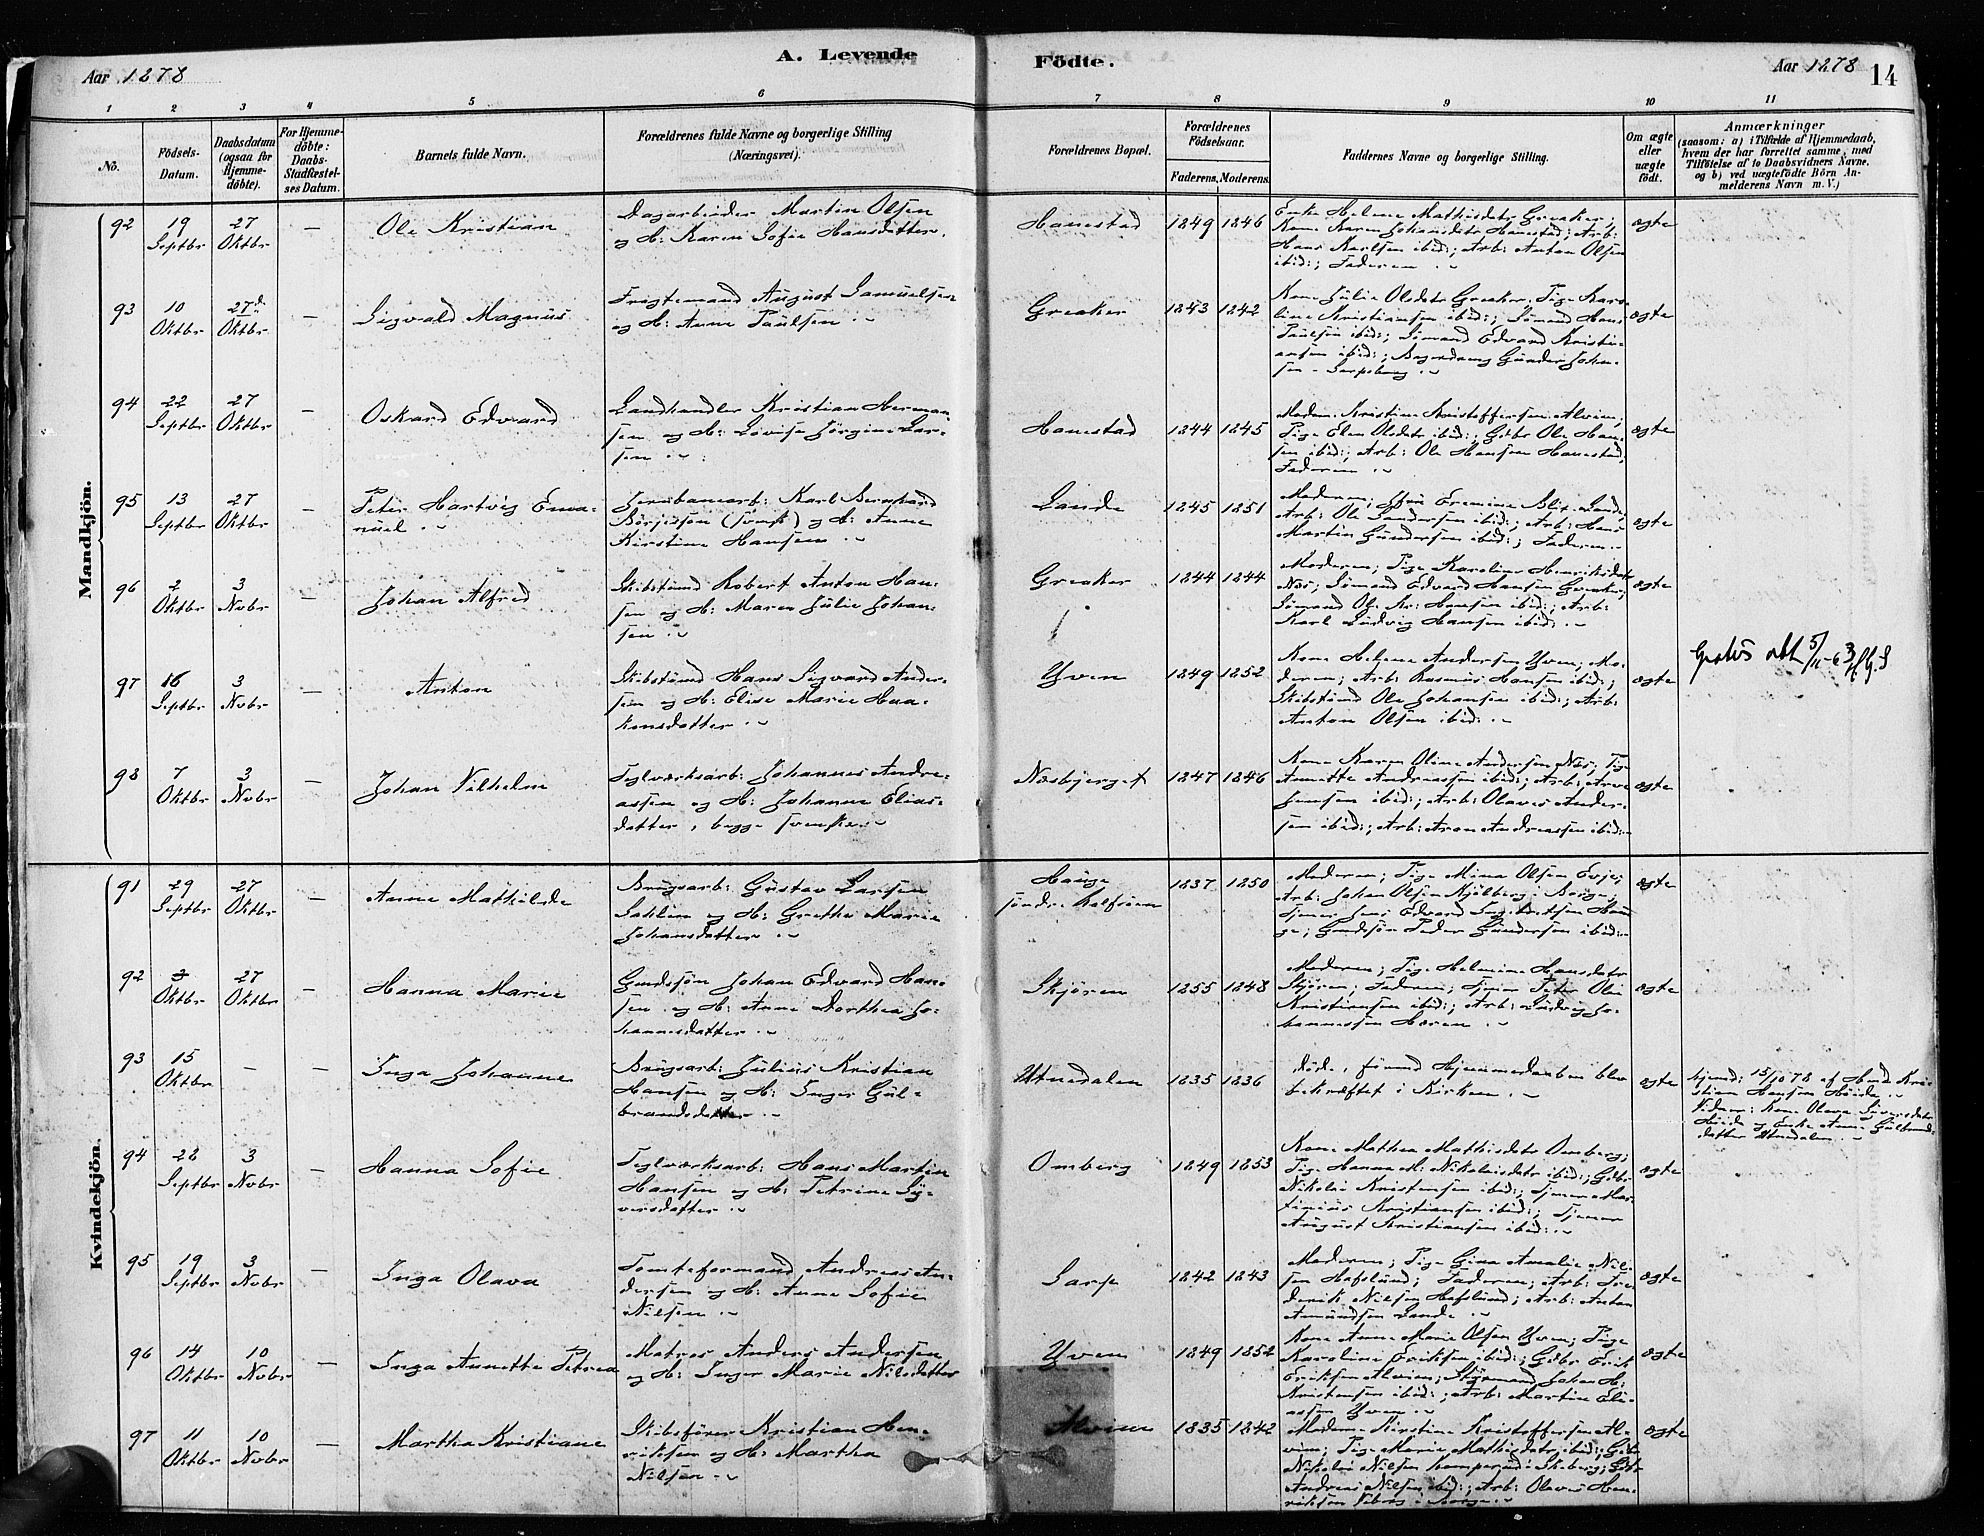 A. Levende Födte.
Aar 1878
Aar 1878 14
1 2 3 4 5 6 7 8 9 10 11
No.
Födsels-Datum.
Daabsdatum (ogsaa for Hjemme-döbte).
For Hjemme-döbte: Daabs-Stadfæstel-ses Datum.
Barnets fulde Navn.
Forældrenes fulde Navne og borgerlige Stilling (Næringsvei).
Forældrenes Bopæl.
Forældrenes Födselsaar.
Faderens. Moderens.
Faddernes Navne og borgerlige Stilling.
Om ægte eller uægte födt.
Anmærkninger
(saasom: a) i Tilfælde af Hjemmedaab,
hvem der har forrettet samme, med
Tilföielse af to Daabsvidners Navne,
og b) ved uægtefödte Börn An-
melderens Navn m. V.)
Mandkjön.
92 19 Septbr 27 Oktbr — Ole Kristian
Dagarbeider Martin Olsen
og H: Karen Sofie Hansdatter.
Hanestad 1849 1846
Enke Helene Mathisdatr Greaker;
Kone Karen Johansdatr Hanestad; Arb:
Hans Karlsen ibid:; Arb: Anton Olsen
ibid:; Faderen
ægte
93 10 Oktbr 27d Oktbr — Sigvald Magnus
Fragtemand August Samuelsen
og H: Anne Paulsen
Greaker 1843 1842
Kone Julie Olsdatr Greaker; Pige Karo-
line Kristiansen ibid:; Sømand Hans
Paulsen ibid:; Sømand Edvard Kristi-
ansen ibid:; Gunder Johan-
sen Sarpsborg
ægte
94 22 Septbr 27 Oktbr — Oskard Edvard
Landhandler Kristian Herman-
sen og H: Lovise Jørgine Lar-
sen
Hanestad 1844 1845
Madem Kristine Kristoffersen Alvim;
Pige Elen Olsdatr ibid:; Gdbr Ole Han-
sen ibid:; Arb: Ole Hansen Hanestad,
Faderen
ægte
95 13 Septbr 27 Oktbr — Peter Hartvig Ema-
nuel
Jernbanearb: Karl Bernhard
Børjesson (svensk) og H: Anne
Kirstine Hansen
Lande 1845 1851
Moderen; Blix Lande,
Arb: Ole Gundersen ibid:; Arb: Hans
Martin Gundersen ibid:; Faderen
ægte
96 2 Oktbr 3 Novbr — Johan Alfred
Skibstømd Robert Anton Han-
sen og H: Maren Julie Johan-
sen
Greaker 1844 1844
Moderen; Pige Karoline Henriksdatr
Næs; Sømand Edvard Hansen Greaker;
Sømand Ole Kr: Hansen ibid:; Arb:
Karl Ludvig Hansen ibid:
ægte
97 16 Septbr 3 Novbr — Anton
Skibstømd Hans Sigvard Ander-
sen og H: Elise Marie Haa-
kensdatter
Yven 1849 1852
Kone Helene Andersen Yven; Mo-
deren; Arb: Rasmus Hansen ibid:;
Skibstømd Ole Johansen ibid:; Arb:
Anton Olsen ibid:
ægte
98 7 Oktbr 3 Novbr — Johan Vilhelm
Teglværksarb: Johannes Andre-
assen og H: Johanne Elias-
datter, begge svenske.
Næsbjerget 1847 1846
Kone Karen Oline Andersen Næs; Pige
Annette Andreassen ibid:; Arb: Arve
Jensen ibid:; Arb: Olaves Ander-
sen ibid:; Arb: Aron Andreassen ibid:
ægte
Kvindekjön.
91 29 Septbr 27 Oktbr — Anne Mathilde
Brugsarb: Gustav Larsen
Sahlin og H: Grethe Marie
Johansdatter
Hauge
søndre Kalfsøen 1837 1850
Moderen; Pige Mina Olsen Evje;
Arb: Johan Olsen Kjølberg i Borge;
Tjener Jens Edvard Ingebretsen Hau-
ge; Gaardsøn Peder Gundersen ibid:
ægte
92 3 Oktbr 27 Oktbr — Hanna Marie
Gaardsøn Johan Edvard Han-
sen og H: Anne Dorthea Jo-
hannesdatter
Skjøren 1855 1848
Moderen; Pige Helmine Hansdatr
Skjøren; Faderen; Tjener Peter Olai
Kristiansen ibid:; Arb: Ludvig Jo-
hannessen Haren
ægte
93 15 Oktbr — — Inga Johanne
Brugsarb: Julius Kristian
Hansen og H: Inger Gul-
brandsdatter
Utnedalen 1835 1836
døde, førend Hjemmedaaben blev
bekræftet i Kirken.
ægte
Hjemd: 15/10 78 af Kri-
stian Hansen Høiden
Vidner: Kone Olava Siversdatr
Høida og Enke Anne Gulbrands-
datter Utnedalen
94 28 Septbr 3 Novbr — Hanna Sofie
Teglværksarb: Hans Martin
Hansen og H: Petrine Sy-
versdatter
Omberg 1849 1853
Kone Mathea Mathisdatr Omberg;
Pige Hanna M: Nikolaisdatr ibid:; Gdbr
Nikolai Kristensen ibid:; Tjener Mar-
tinius Kristiansen ibid:; Tjener
August Kristiansen ibid:
ægte
95 19 Septbr 3 Novbr — Inga Olava
Tomteformand Andreas An-
dersen og H: Anne Sofie
Nilsen
Sarp 1842 1843
Moderen; Pige Gina Amalie Nil-
sen Hafslund; Faderen; Arb: Fre-
derik Nilsen Hafslund; Arb: Anton
Amundsen Sande
ægte
96 14 Oktbr 10 Novbr — Inga Annette Petrea
Matros Anders Andersen
og H: Inger Marie Nilsdatter
Yven 1849 1852
Kone Anne Marie Olsen Yven; Pige
Karoline Eriksen ibid:; Gdbr Erik
Eriksen Alvim; Styrmand Johan H:
Kristensen ibid:; Arb: Martin Eli-
assen Yven
ægte
97 11 Oktbr 10 Novbr — Martha Kristiane
Skibsfører Kristian Hen-
riksen og H: Martha
Nilsen
Alvim 1835 1842
Madem Kirstine Kristoffersen Al-
vim; Pige Marie Mathisdatr ibid:; Gdbr
Nikolai Nilsen Skeberg; Gbr
Andreas Nilsen ibid:; Arb: Olaves Hen-
riksen
ægte